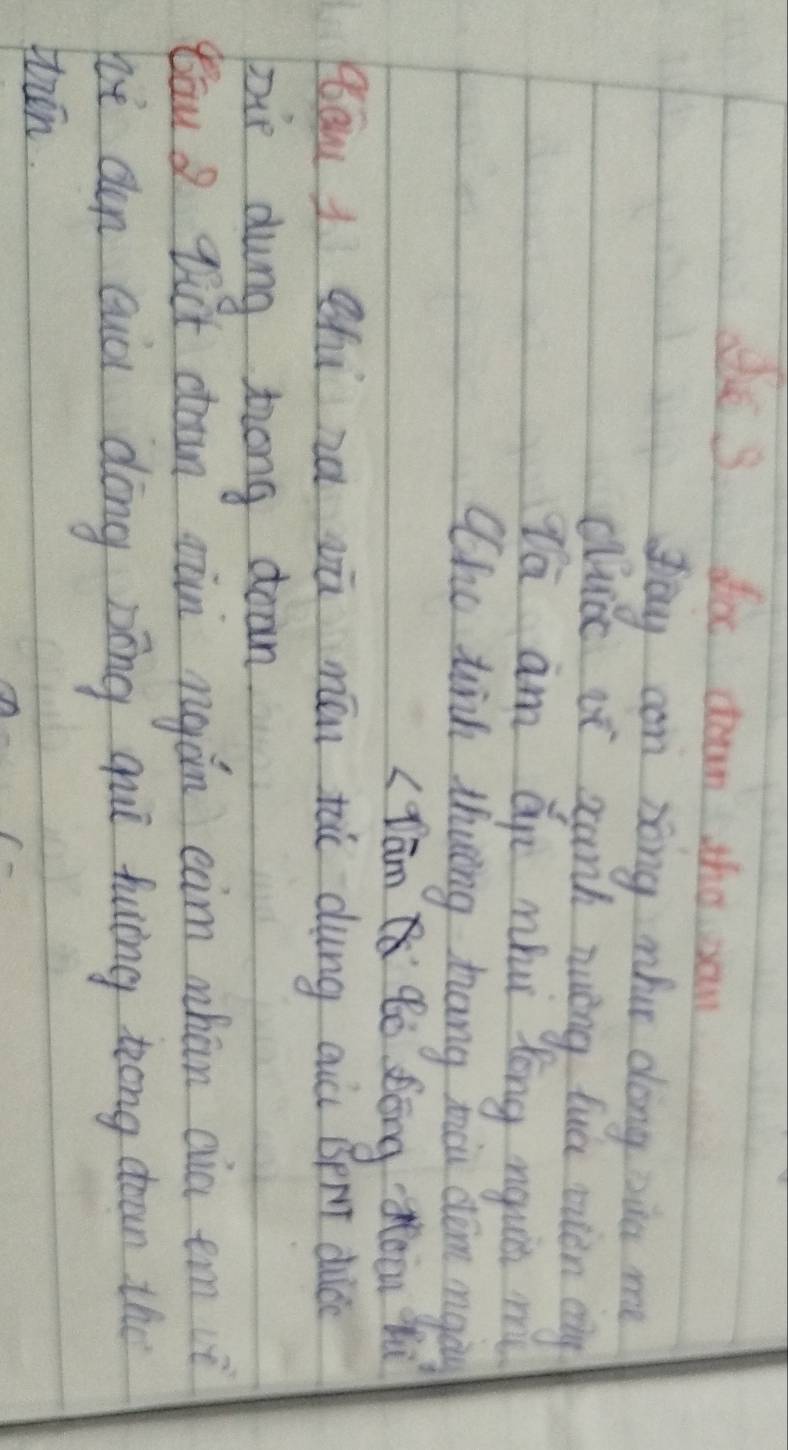 Đề 3 Đọc đoạn thơ sau
Đây con sông như dòng sữa mẹ
Nước về xanh ruộng lúa vườn cây
Và ăm ắp như lòng người mẹ
Chở tình thương trang trải đêm ngày
<Vàm Cỏ Đông - Hoài Vũ
Câu 1 Chỉ ra và nêu tác dụng của BPNT được
sử dụng trong đoạn
Câu 2 Viết đoạn văn ngắn cảm nhận của em về
vẻ đẹp của dòng sông quê hương trong đoạn thơ
trên.